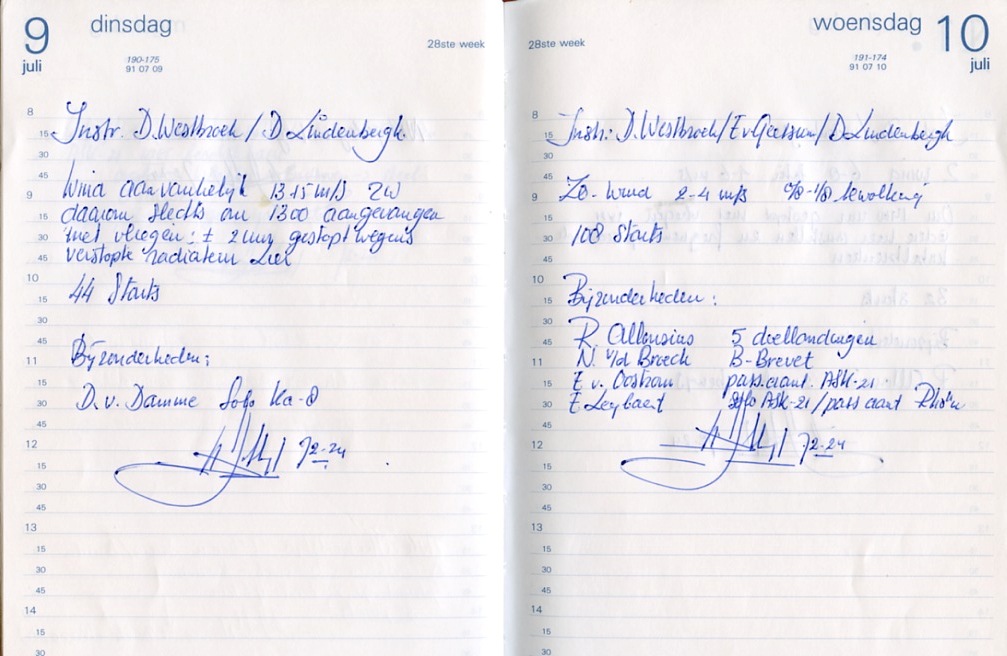 9 dinsdag
juli
190-175
91 07 09
28ste week
8
15
30
45
9
15
30
45
10
15
30
45
11
15
30
45
12
15
30
45
13
15
30
45
14
15
30
Instr. D. Westbroek / D Lindenbergh.
Wind aanvankelijk 13 15 m/s ZW
daarom slechts om 1300 aangevangen
met vliegen; ± 2 uur gestopt wegens
verstopte radiateur Lier
44 Starts
Bijzonderheden;
D. v. Damme Solo Ka-8
72-24
woensdag 10
juli
191-174
91 07 10
28ste week
8
15
30
45
9
15
30
45
10
15
30
45
11
15
30
45
12
15
30
45
13
15
30
45
14
15
30
Instr: D. Westbroek / E v / D Lindenbergh
Zo- wind 2-4 m/s bewolking
108 Starts
Bijzonderheden:
R. 5 doellandingen
N. v/d Broeck B-Brevet
E v. Oostrom pass. aant. ASK-21
E Leybaert solo ASK-21 / pass aant Rhön
72-24